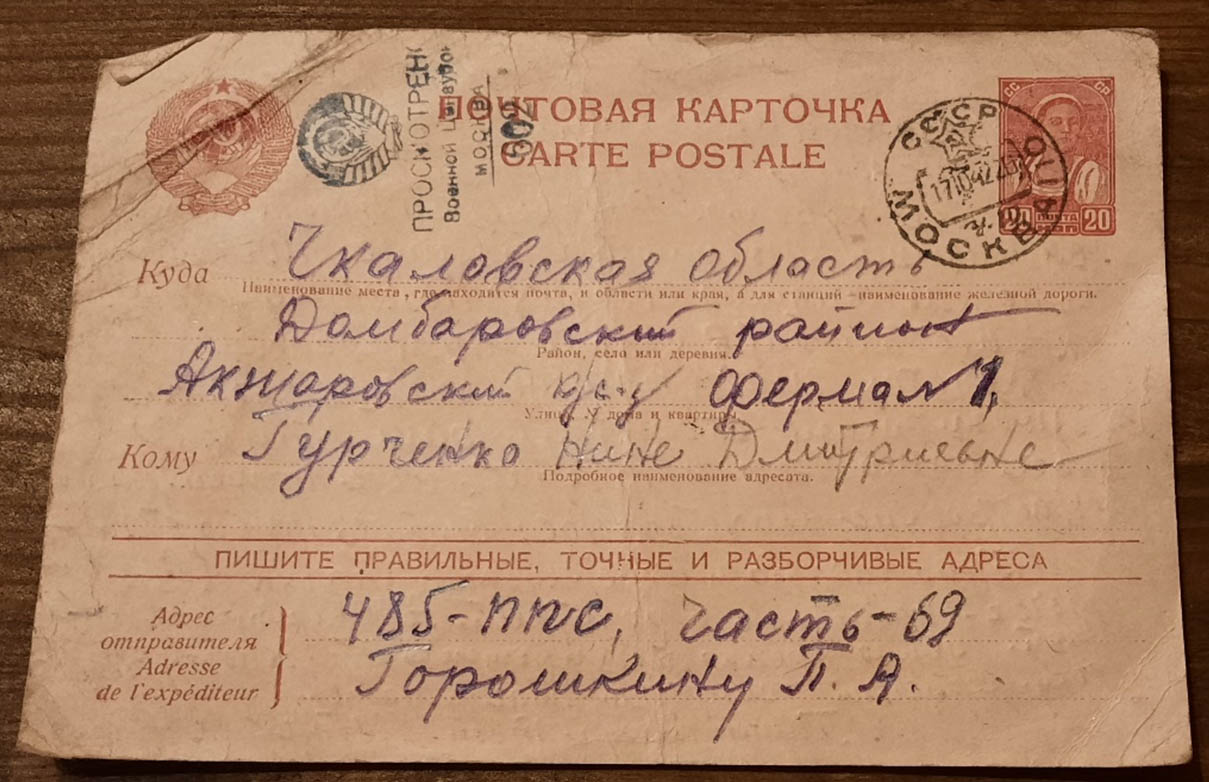 ПРОСМОТРЕНО
Военной Цензурой
МОСКВА
602
ПОЧТОВАЯ КАРТОЧКА
CARTE POSTALE
СССР
МОСКВА
17 10 42
20 ПОЧТА 20
Куда Чкаловская область
Наименование места, где находится почта, и области или края, а для станций — наименование железной дороги.
Домбаровский район
Район, село или деревня.
Акжаровский Ферма №1,
Улица, № дома и квартиры.
Кому Гурченко Нине Дмитриевне
Подробное наименование адресата.
ПИШИТЕ ПРАВИЛЬНЫЕ, ТОЧНЫЕ И РАЗБОРЧИВЫЕ АДРЕСА
Адрес отправителя
Adresse de l'expéditeur
485-ППС, часть-69
Горошкину П. А.